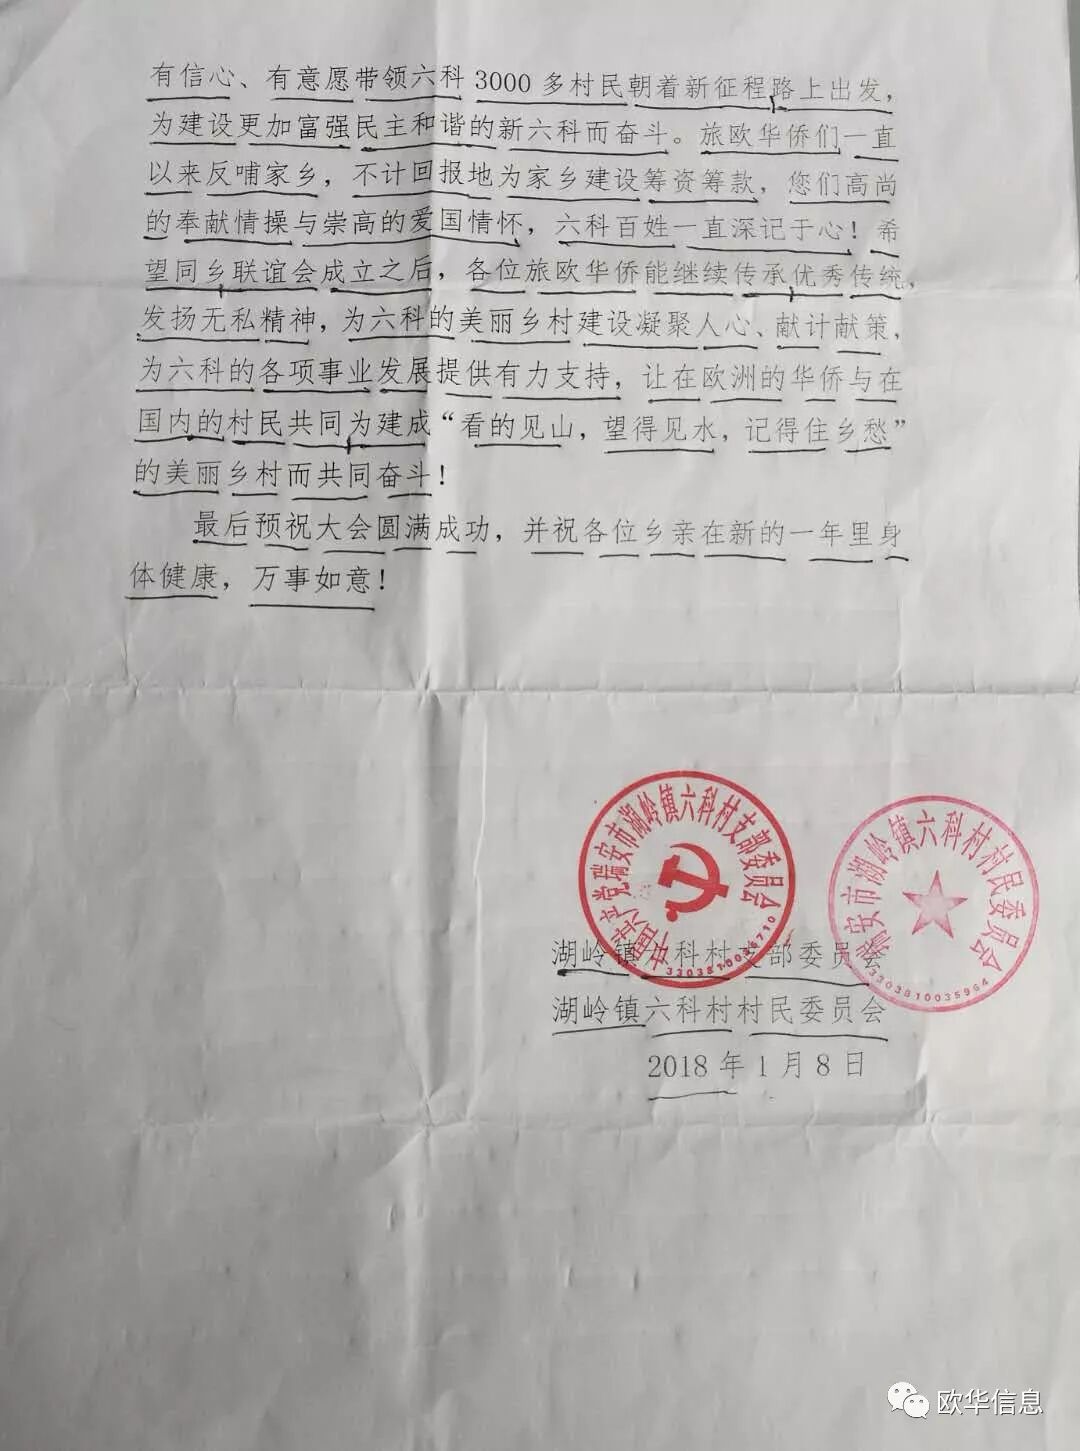 有信心、有意愿带领六科3000多村民朝着新征程路上出发，
为建设更加富强民主和谐的新六科而奋斗。旅欧华侨们一直
以来反哺家乡，不计回报地为家乡建设筹资筹款，您们高尚
的奉献情操与崇高的爱国情怀，六科百姓一直深记于心！希
望同乡联谊会成立之后，各位旅欧华侨能继续传承优秀传统，
发扬无私精神，为六科的美丽乡村建设凝聚人心、献计献策，
为六科的各项事业发展提供有力支持，让在欧洲的华侨与在
国内的村民共同为建成“看的见山，望得见水，记得住乡愁”
的美丽乡村而共同奋斗！
最后预祝大会圆满成功，并祝各位乡亲在新的一年里身
体健康，万事如意！
中国共产党瑞安市湖岭镇六科村支部委员会
瑞安市湖岭镇六科村村民委员会
3303810035964
湖岭镇六科村支部委员会
湖岭镇六科村村民委员会
2018年1月8日
欧华信息